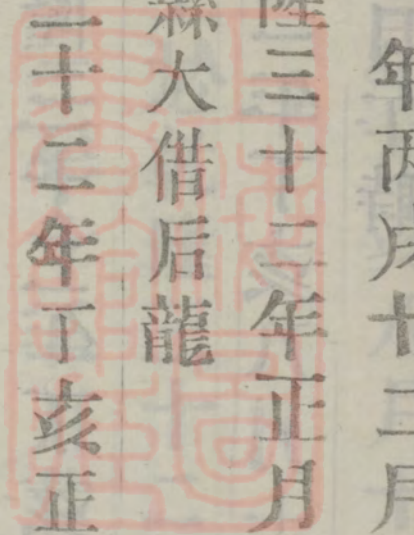 年丙戌十二月
陞三十二年正月
縣大借后龍
二十二年丁亥正